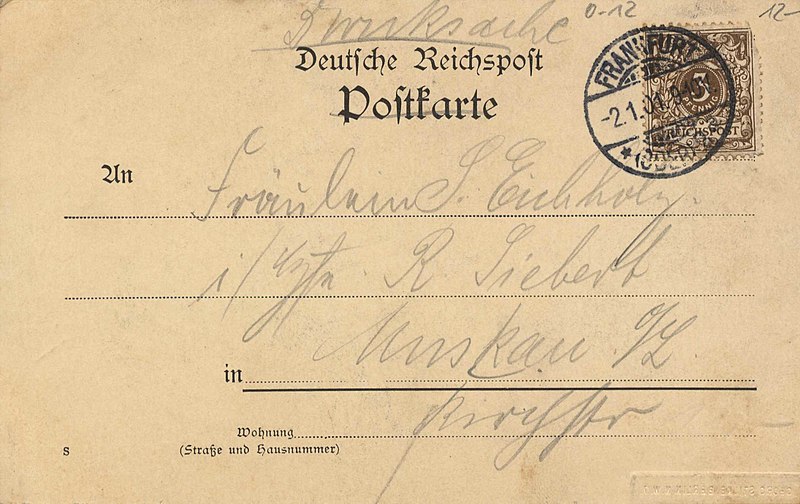 Drucksache
0-12
12-
Deutsche Reichspost
Postkarte
FRANKFURT
-2.1.
* (ODER)
REICHSPOST
An
Fräulein S. Eichholz.
R. Siebert
Muskau O/L.
in
Kirchstr
Wohnung
(Straße und Hausnummer)
S